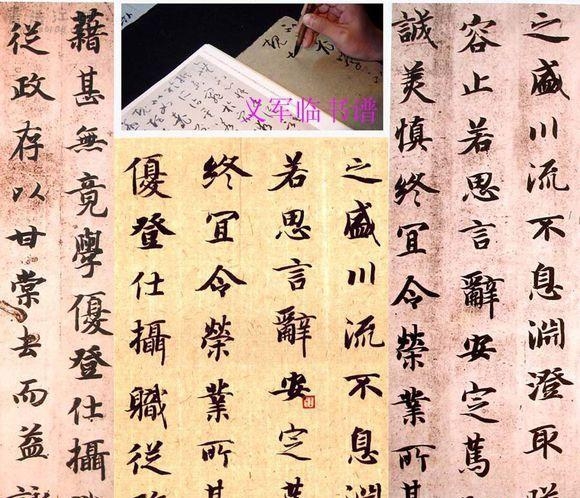 之盛川流不息淵澄取
容止若思言辭安定篤
誠美慎終宜令榮業所
义军临书谱
之盛川流不息
若思言辭安定
終宜令榮業所
優登仕攝職從
藉甚無竟學優登仕攝
從政存以甘棠去而益